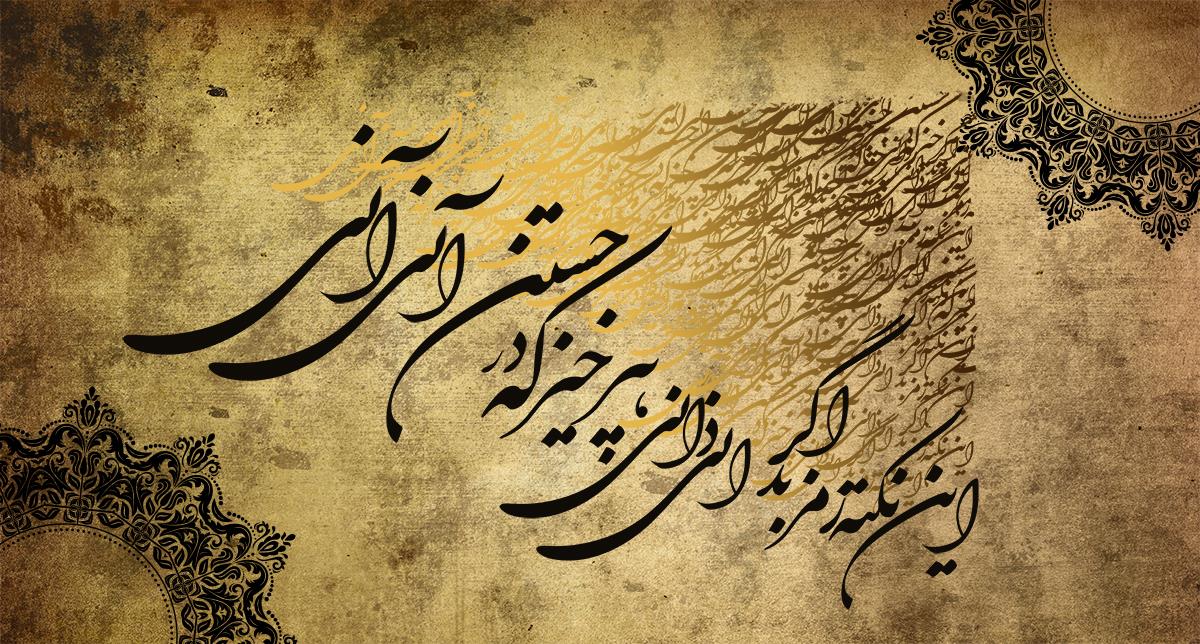 این نکته رمز اگر بدانی دانی
هر چیز که در جستن آنی آنی